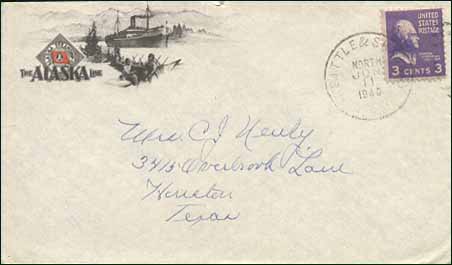 THE ALASKA LINE
SEATTLE &
NORTH
JUN
11
1940
UNITED
STATES
POSTAGE
3 CENTS 3
Mrs. C J Neuly
3415 Overbrook Lane
Houston
Texas